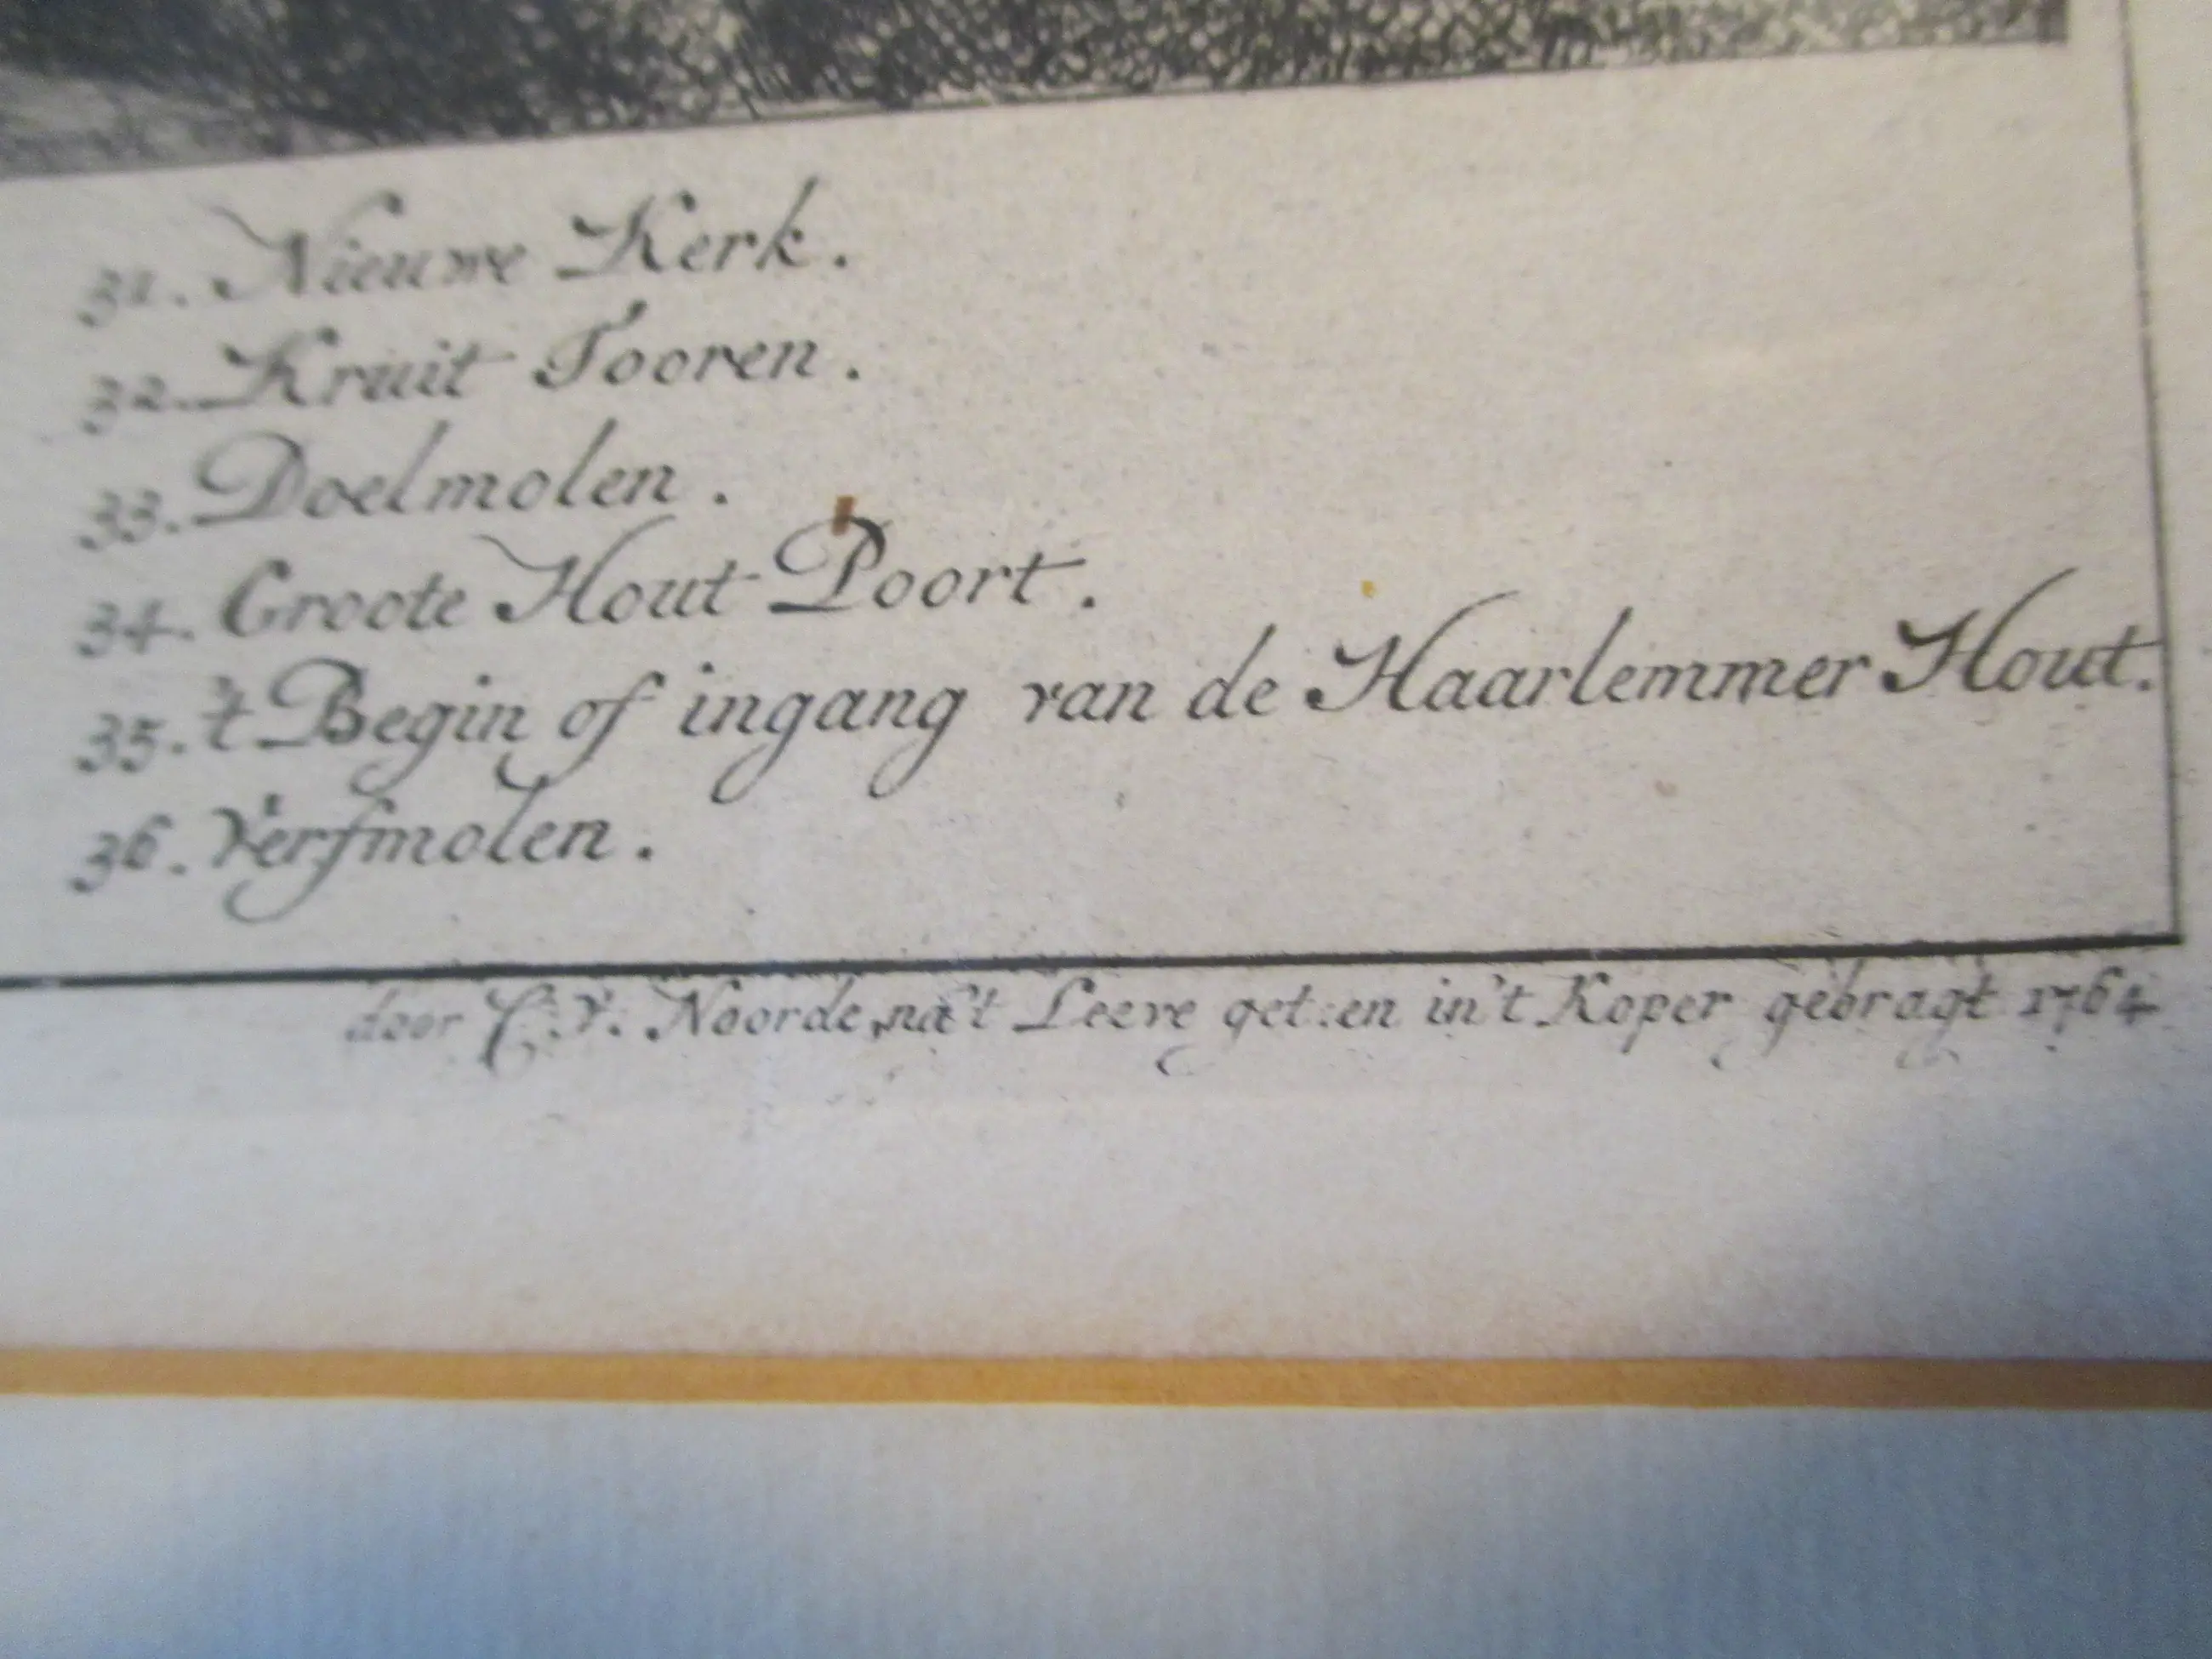 31. Nieuwe Kerk.
32. Kruit Tooren.
33. Doelmolen.
34. Groote Hout Poort.
35. 't Begin of ingang van de Haarlemmer Hout.
36. Verfmolen.
door C. V. Noorde, na 't Leeve get: en in 't Koper gebragt 1764